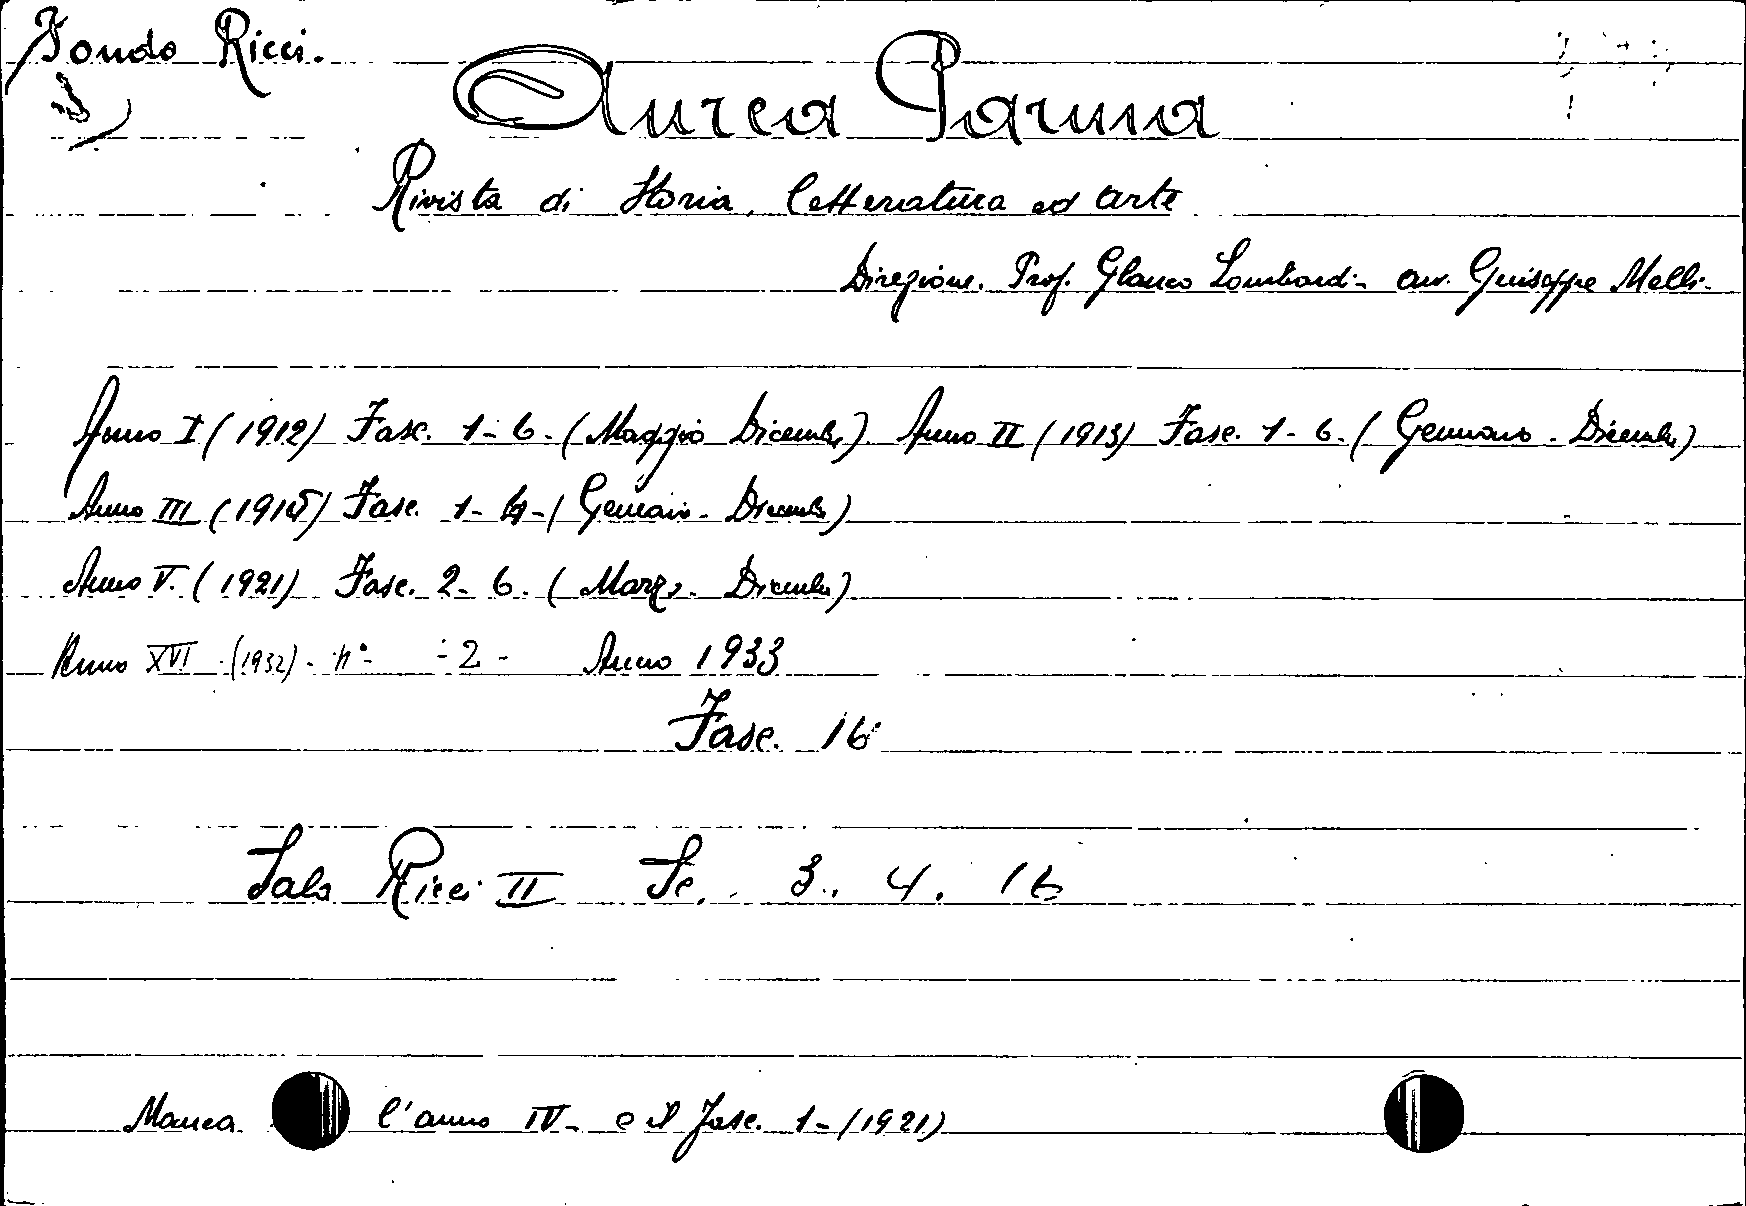 Fondo Ricci.
Aurea Parma
Rivista di Storia, letteratura ed arte
Direzione. Prof. Glauco Lombardi - avv. Guiseppe Melli.
Anno I (1912) Fasc. 1-6. (Maggio Dicembre) Anno II (1913) Fasc. 1-6. (Gennaio - Dicembre)
Anno III (1915) Fasc. 1- (Gennaio - Dicembre)
Anno V. (1921) Fasc. 2-6. (Marzo - Dicembre)
Anno XVI - (1932) - n° - 2 - Anno 1933
Fasc. 16
Sala Ricci II Sc. 3. 4. 16
Manca l'anno IV - e il fasc. 1 - (1921)